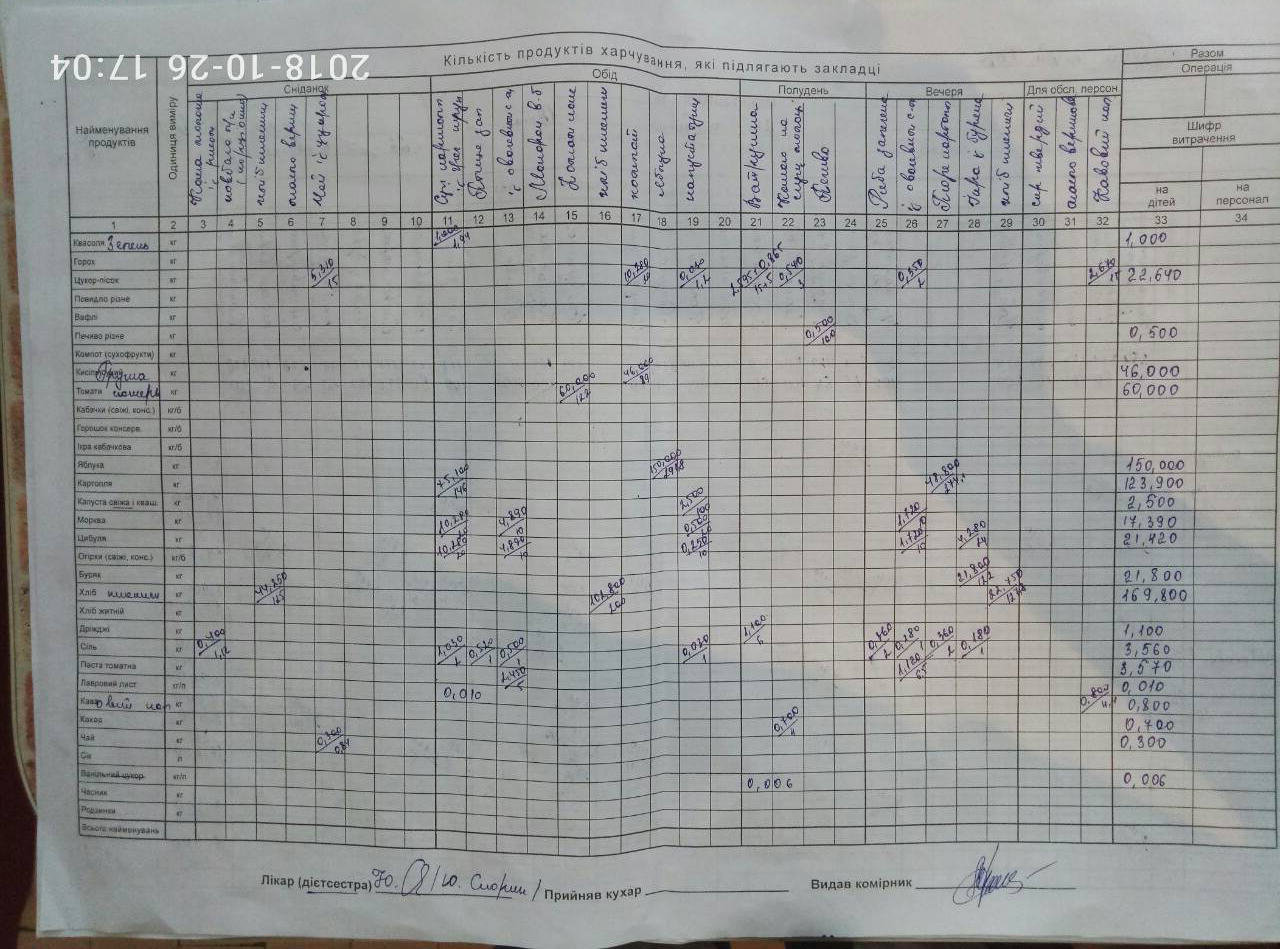 2018-10-26 17:04
Кількість продуктів харчування, які підлягають закладці
Разом
Операція
Сніданок
Обід
Полудень
Вечеря
Для обсл. персон.
Шифр витрачення
Найменування продуктів
Одиниця виміру
хліб пшеничн
масло вершк
Чай с цукром
Макарон в.б
хліб пшеничн
компот
яблука
Ватрушка
Печиво
Риба запечена
хліб пшенич
сир твердий
масло вершков
Кавовий нап
на дітей
на персонал
1 2 3 4 5 6 7 8 9 10 11 12 13 14 15 16 17 18 19 20 21 22 23 24 25 26 27 28 29 30 31 32 33 34
Квасоля Зелень кг 1,000 1,94 1,000
Горох кг
Цукор-пісок кг 5,310 15 10,280 20 1,2 2,595+0,865 15+5 0,540 3 0,350 2 2,670 15 22,640
Повидло різне кг
Вафлі кг
Печиво різне кг 0,500 100 0,500
Компот (сухофрукти) кг
Груша кг 46,000 89 46,000
Томати кг 60,000 122 60,000
Кабачки (свіжі, конс.) кг/б
Горошок консерв. кг/б
Ікра кабачкова кг/б
Яблука кг 150,000 150,000
Картопля кг 75,100 146 48,800 123,900
Капуста свіжа і кваш. кг 2,500 100 2,500
Морква кг 10,280 20 4,890 10 0,500 1,720 10 17,390
Цибуля кг 10,280 20 4,890 10 0,250 10 1,720 10 4,280 24 21,420
Огірки (свіжі, конс.) кг/б
Буряк кг 21,800 122 21,800
Хліб пшеничн кг 44,250 125 102,800 200 22,750 169,800
Хліб житній кг
Дріжджі кг 1,100 6 1,100
Сіль кг 0,400 1,12 1,030 2 0,520 1 0,500 1 0,030 1 0,360 2 0,180 1 0,360 2 0,180 1 3,560
Паста томатна кг 2,450 5 1,120 6,5 3,570
Лавровий лист кг/п 0,010 0,010
Кавовий нап кг 0,800 0,800
Какао кг 0,700 4 0,700
Чай кг 0,300 0,84 0,300
Сік л
Ванільний цукор кг/п 0,006 0,006
Часник кг
Родзинки кг
Всього найменувань
Лікар (дієтсестра)
Прийняв кухар
Видав комірник